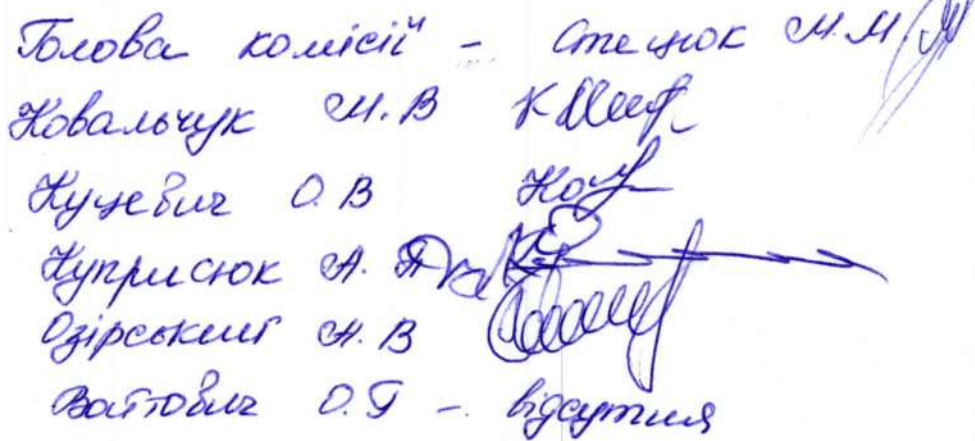 Голова комісії - Стецюк М.М
Ковальчук М.В
Куцевич О.В
Куприсюк А.
Озірський А.В
Войтович О.Г - відсутня